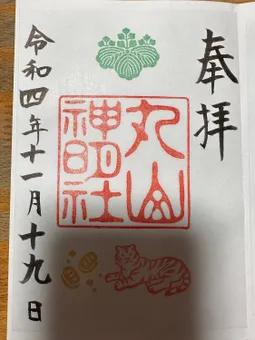 奉拝
丸山
神明社
令和四年十一月十九日